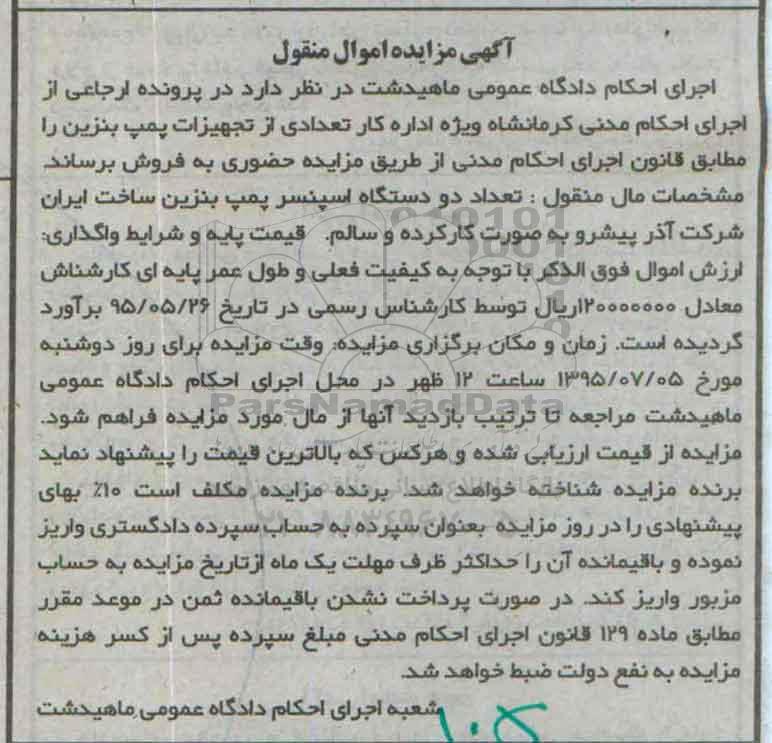 آگهی مزایده اموال منقول
اجرای احکام دادگاه عمومی ماهیدشت در نظر دارد در پرونده ارجاعی از
اجرای احکام مدنی کرمانشاه ویژه اداره کار تعدادی از تجهیزات پمپ بنزین را
مطابق قانون اجرای احکام مدنی از طریق مزایده حضوری به فروش برساند.
مشخصات مال منقول : تعداد دو دستگاه اسپنسر پمپ بنزین ساخت ایران
شرکت آذر پیشرو به صورت کارکرده و سالم. قیمت پایه و شرایط واگذاری:
ارزش اموال فوق الذکر با توجه به کیفیت فعلی و طول عمر پایه ای کارشناش
معادل ۱۲۰۰۰۰۰۰۰ریال توسط کارشناس رسمی در تاریخ ۹۵/۰۵/۲۶ برآورد
گردیده است. زمان و مکان برگزاری مزایده: وقت مزایده برای روز دوشنبه
مورخ ۱۳۹۵/۰۷/۰۵ ساعت ۱۲ ظهر در محل اجرای احکام دادگاه عمومی
ParsNamadData
ماهیدشت مراجعه تا ترتیب بازدید آنها از مال مورد مزایده فراهم شود.
مزایده از قیمت ارزیابی شده و هرکس که بالاترین قیمت را پیشنهاد نماید
برنده مزایده شناخته خواهد شد. برنده مزایده مکلف است ۱۰٪ بهای
پیشنهادی را در روز مزایده بعنوان سپرده به حساب سپرده دادگستری واریز
نموده و باقیمانده آن را حداکثر ظرف مهلت یک ماه ازتاریخ مزایده به حساب
مزبور واریز کند. در صورت پرداخت نشدن باقیمانده ثمن در موعد مقرر
مطابق ماده ۱۲۹ قانون اجرای احکام مدنی مبلغ سپرده پس از کسر هزینه
مزایده به نفع دولت ضبط خواهد شد.
شعبه اجرای احکام دادگاه عمومی ماهیدشت